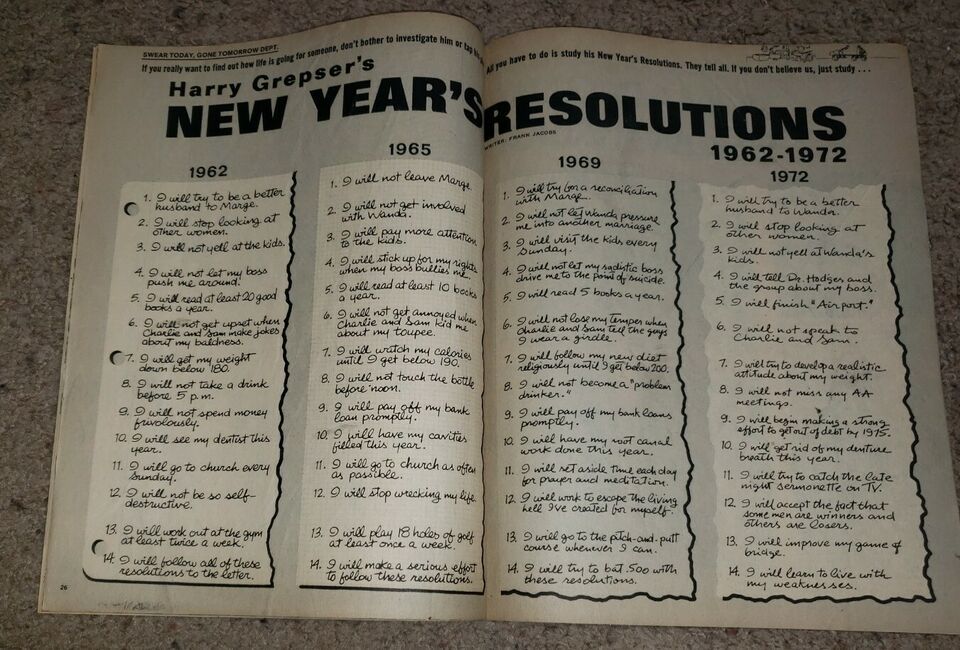 SWEAR TODAY, GONE TOMORROW DEPT.
If you really want to find out how life is going for someone, don't bother to investigate him or tap his
All you have to do is study his New Year's Resolutions. They tell all. If you don't believe us, just study . . .
Harry Grepser's
NEW YEAR'S RESOLUTIONS
WRITER: FRANK JACOBS
1962-1972
1962
1. I will try to be a better
husband to Marge.
2. I will stop looking at
other women.
3. I will not yell at the kids.
4. I will not let my boss
push me around.
5. I will read at least 20 good
books a year.
6. I will not get upset when
Charlie and Sam make jokes
about my baldness.
7. I will get my weight
down below 180.
8. I will not take a drink
before 5 p.m.
9. I will not spend money
frivolously.
10. I will see my dentist this
year.
11. I will go to church every
Sunday.
12. I will not be so self-
destructive.
13. I will work out at the gym
at least twice a week.
14. I will follow all of these
resolutions to the letter.
26
1965
1. I will not leave Marge.
2. I will not get involved
with Wanda.
3. I will pay more attention
to the kids.
4. I will stick up for my rights
when my boss bullies me.
5. I will read at least 10 books
a year.
6. I will not get annoyed when
Charlie and Sam kid me
about my toupee.
7. I will watch my calories
until I get below 190.
8. I will not touch the bottle
before noon.
9. I will pay off my bank
loan promptly.
10. I will have my cavities
filled this year.
11. I will go to church as often
as possible.
12. I will stop wrecking my life.
13. I will play 18 holes of golf
at least once a week.
14. I will make a serious effort
to follow these resolutions.
1969
1. I will try for a reconciliation
with Marge.
2. I will not let Wanda pressure
me into another marriage.
3. I will visit the kids every
Sunday.
4. I will not let my sadistic boss
drive me to the point of suicide.
5. I will read 5 books a year.
6. I will not lose my temper when
Charlie and Sam tell the guys
I wear a girdle.
7. I will follow my new diet
religiously until I get below 200.
8. I will not become a "problem
drinker."
9. I will pay off my bank loans
promptly.
10. I will have my root canal
work done this year.
11. I will set aside time each day
for prayer and meditation.
12. I will work to escape the living
hell I've created for myself.
13. I will go to the pitch-and-putt
course whenever I can.
14. I will try to bat .500 with
these resolutions.
1972
1. I will try to be a better
husband to Wanda.
2. I will stop looking at
other women.
3. I will not yell at Wanda's
kids.
4. I will tell Dr. Hodges and
the group about my boss.
5. I will finish "Airport."
6. I will not speak to
Charlie and Sam.
7. I will try to develop a realistic
attitude about my weight.
8. I will not miss any AA
meetings.
9. I will begin making a strong
effort to get out of debt by 1975.
10. I will get rid of my denture
breath this year.
11. I will try to catch the late
night sermonette on TV.
12. I will accept the fact that
some men are winners and
others are losers.
13. I will improve my game of
bridge.
14. I will learn to live with
my weaknesses.